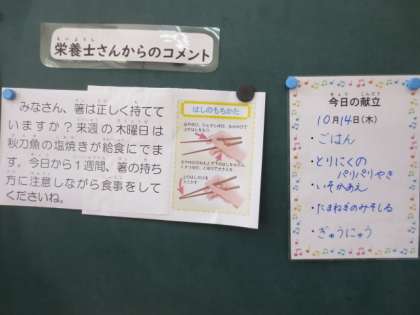 栄養士さんからのコメント
みなさん、箸は正しく持てて
いますか?来週の木曜日は
秋刀魚の塩焼きが給食にでま
す。今日から1週間、箸の持ち
方に注意しながら食事をして
くださいね。
はしのもちかた
今日の献立
10月14日(木)
・ごはん
・とりにくの
パリパリやき
・いそかあえ
・たまねぎのみそしる
・ぎゅうにゅう